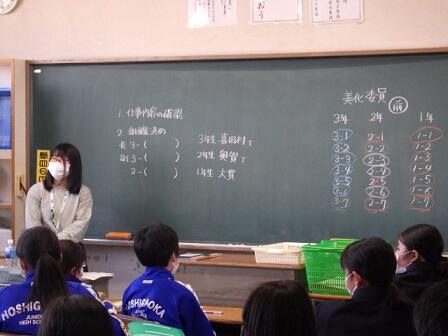 おう
1. 仕事内容の確認
2. 組織決め
長 3-(　　)
副 3-(　　)
2-(　　)
3年生 喜田村T
2年生 奥智T
1年生 大貫
美化委員 前
3年 2年 1年
3-1 2-1 1-1
3-2 2-2 1-2
3-3 2-3 1-3
3-4 2-4 1-4
3-5 2-5 1-5
3-6 2-6 1-6
3-7 2-7 1-7
HOSHIGAOKA
JUNIOR
HIGH SCHOOL
HOSHIGAOKA